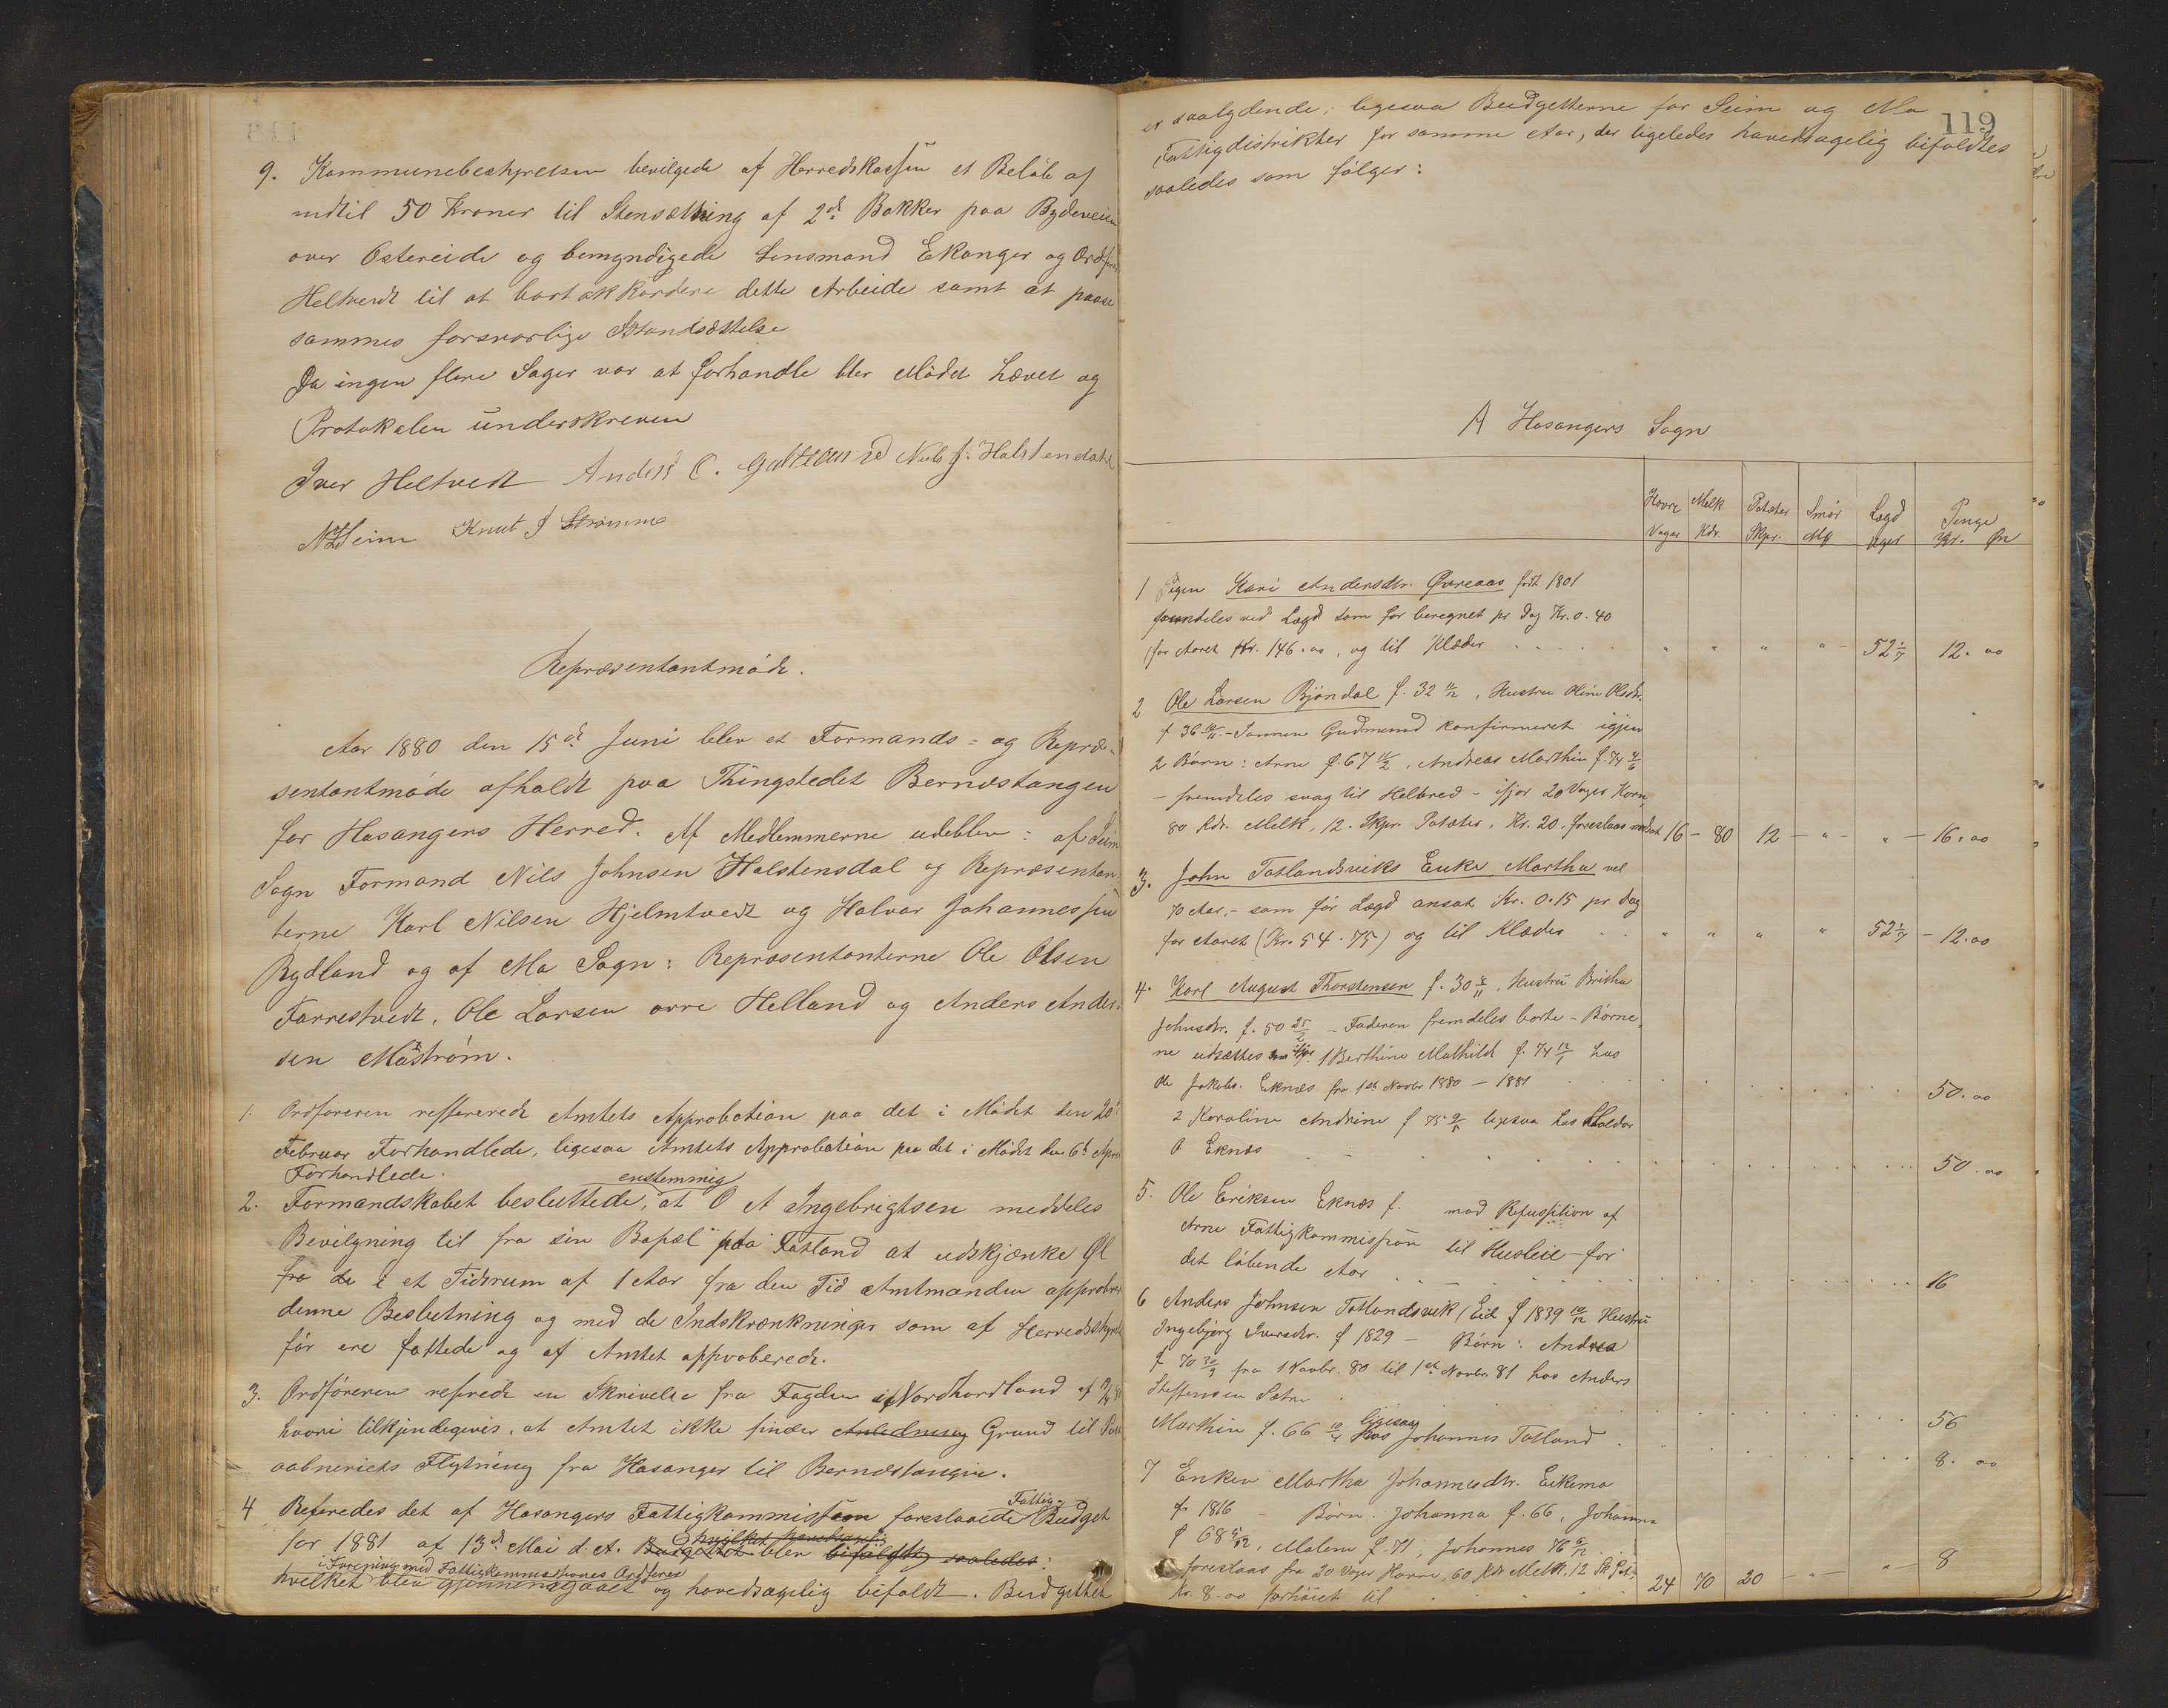 9. Kommunebestyrelsen bevilgede af Herredskassen et Beløb af
indtil 50 Kroner til Stensætning af 2de Bakker paa Bygdeveien
over Ostereide og bemyndigede Lensmand Ekanger og Ordf
Heltvedt til at bortakkordere dette Arbeide samt at paase
sammes forsvarlige Istandsættelse
Da ingen flere Sager var at forhandle blev Mødet hævet og
Protokolen underskreven
Iver Heltvedt Anders O. Nils J. Halstendahl
N Seim Knut J Strømme
Repræsentantmøde.
Aar 1880 den 15de Juni blev et Formands- og Repræ-
sentantmøde afholdt paa Thingstedet Bernestangen
for Hosangers Herred. Af Medlemmerne udeblev: af Seim
Sogn Formand Nils Johnsen Halstensdal og Repræsentan
terne Karl Nilsen Hjelmtvedt og Halvor Johannessen
Rydland og af Mo Sogn: Repræsentanterne Ole Olsen
Farrestvedt, Ole Larsen øvre Helland og Anders Ander-
sen Mostrøm.
1. Ordføreren refererede Amtets Approbation paa det i Mødet den 20
Februar Forhandlede, ligesaa Amtets Approbation paa det i Mødet den 6te April
Forhandlede.
enstemmig
2. Formandskabet besluttede, at O A Ingebrigtsen meddeles
Bevilgning til fra sin Bopæl paa Fatland at udskjænke Øl
fra de i et Tidsrum af 1 Aar fra den Tid Amtmanden approber
denne Beslutning og med de Indskrænkninger som af Herredsstyret
før ere fattede og af Amtet approberede.
3. Ordføreren referede en Skrivelse fra Fogden i Nordhordland af
hvori tilkjendegives, at Amtet ikke finder Anledning Grund til Post
aabneriets Flytning fra Hosanger til Bernestangen.
Fattig-
4 Referedes det af Hosangers Fattigkommission foreslaaede Budget
for 1881 af 13de Mai d. A. Budgettet blev bifaldt saaledes:
i Forening med Fattigkommissionens Ordfører
hvilket blev gjennemgaaet og hovedsagelig bifaldt. Budgettet
119
er saalydende; ligesaa Budgetterne for Seim og Mo
Fattigdistrikter for samme Aar, der ligeledes hovedsagelig bifaldtes
saaledes som følger:
A Hosangers Sogn
Havre Melk Poteter Smør Lægd Penge
Voger Kdr. Skpr. Uger Kr. Ør
1 Pigen Kari Andersdtr. Øvreaas født 1801
fremdeles ved Lægd som før beregnet pr Dag Kr. 0.40
for Aaret Kr. 146.00, og til Klæder " " " " 52 1/7 12.00
2 Ole Larsen Bjøndal f. 32 , Hustru Oline Olsdtr.
f 36 - Sønnen Gudmund konfirmeret igjen
2 Børn: Arne f. 67 , Andreas Marthin f. 74
- fremdeles svag til Helbred - ifjor 20 Voger Korn
80 Kdr. Melk, 12. Skpr. Potæter, Kr. 20, foreslaas nedsat 16 - 80 12 - " - " - 16.00
3. John Totlandsviks Enke Martha vel
70 Aar, - som før Lægd ansat Kr. 0.15 pr Dag
for Aaret (Kr. 54.75) og til Klæder " " " " 52 1/7 - 12.00
4. Karl August Thorstensen f. 30 , Hustru Britha
Johnsdtr. f. 50 - Faderen fremdeles borte - Børne-
ne udsættes 1 Berthine Mathilde f. 74 hos
Ole Jakobs. Eknes fra 1ste Novbr 1880 - 1881 50.00
2 Karoline Andrine f 75 ligesaa hos Haldor
O Eknes 50.00
5. Ole Eriksen Eknæs f. mod Refussition af
Arne Fattigkommission til Husleie - for
det løbende Aar 16
6 Anders Johnsen Totlandsvik (Eid f 1839 Hustru
Ingebjørg Iversdtr. f 1829 - Børn: Andrea
f 70 fra 1 Novbr. 80 til 1ste Novbr. 81 hos Anders
Steffensen Sætre 56
ligesaa
Marthin f. 66 hos Johannes Totland 8.00
7 Enken Martha Johannesdtr. Eikemo
f. 1816 - Børn: Johanna f. 66, Johanna
f 68 , Malene f. 71, Johannes 76
foreslaas fra 20 Voger Havre, 60 Kdr Melk, 12 Sk Pot. " - 8
Kr. 8.00 forhøiet til 24 70 20 - " -